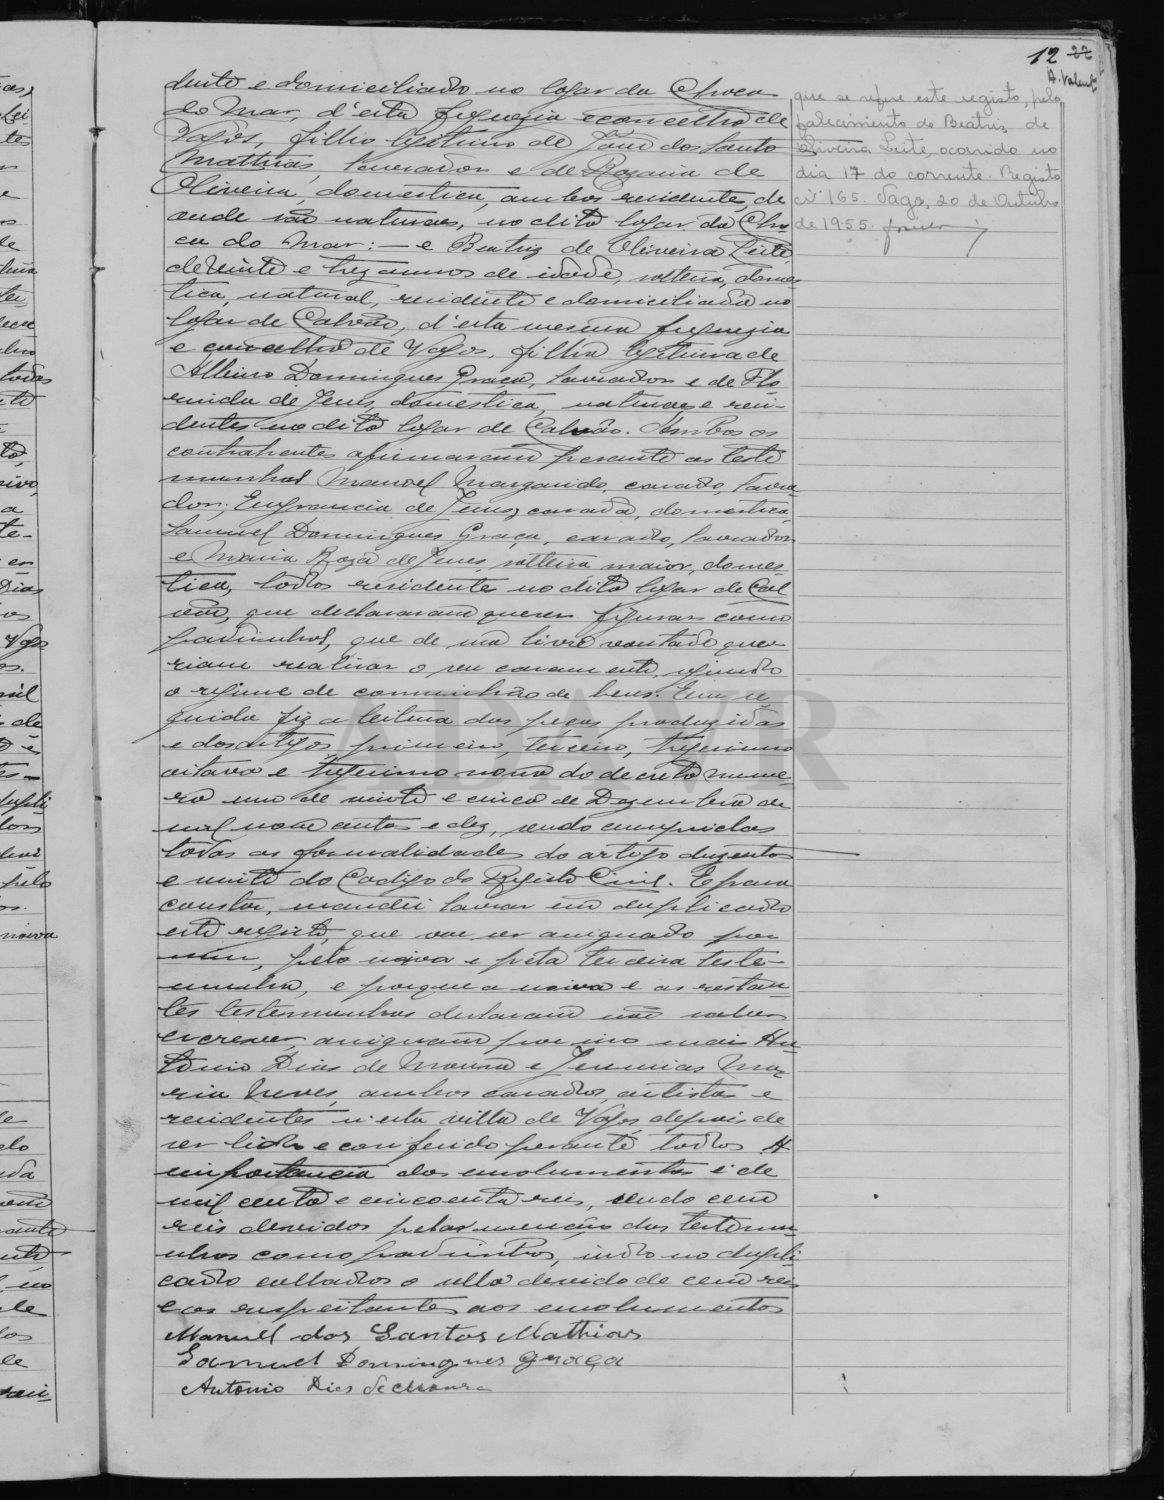 12 22
A. Valente
que se refere este registo, pelo
falecimento de Beatriz de
Oliveira Leite, ocorrido no
dia 17 do corrente. Registo
nº 165. Vagos, 20 de Outubro
de 1955.
dente e domiciliado no logar da Choca
do Mar, d'esta freguezia e concelho de
Vagos, filho legitimo de João dos Santos
Matthias, lavrador e de Rozaria de
Oliveira, domestica, ambos residentes, de
onde são naturaes, no dito logar da Cho
ca do Mar: — e Beatriz de Oliveira Leite
de vinte e trez annos de idade, solteira, domes
tica, natural, residente e domiciliada no
logar de Calvão, d'esta mesma freguezia
e concelho de Vagos, filha legitima de
Albino Domingues Graça, lavrador e de Flo
rinda de Jesus, domestica, naturaes e resi-
dentes no dito logar de Calvão. Ambos os
contrahentes afirmaram perante as teste
munhas Manoel Margarido, casado, lavra
dor; Eufrancia de Jesus, casada, domestica,
Samuel Domingues Graça, casado, lavrador
e Maria Roza de Jesus, solteira maior, domes
tica, todos residentes no dito logar de Cal
vão, que declararam querer figurar como
padrinhos, que de sua livre vontade que-
riam realisar o seu casamento, segundo
o regime de communhão de bens. Em se
guida fiz a leitura das peças produzidas
e dos artigos primeiro, terceiro, trigesimo
oitavo e trigesimo nono do decreto nume-
ro um de vinte e cinco de Dezembro de
mil nove centos e dez, sendo cumpridas
todas as formalidades do artigo duzentos
e vinte do Codigo do Registo Civil. E para
constar, mandei lavrar em duplicado
este registo, que vae ser assignado por
mim, pelo noivo e pela terceira teste-
munha, e porque a noiva e as restan-
tes testemunhas declararam não saber
escrever, assignam por isso mais An-
tonio Dias de Moura e Jeremias Ma-
ria Neves, ambos casados, artistas e
residentes n'esta villa de Vagos, depois de
ser lido e conferido perante todos. A
importancia dos emolumentos é de
mil cento e cincoenta reis, sendo cem
reis devidos pela menção das testemu-
nhas como padrinhos, indo no dupli-
cado collados o sello devido de cem reis
e os respeitantes aos emolumentos
Manuel dos Santos Mathias
Samuel Domingues Graça
Antonio Dias de Moura
ADAVR